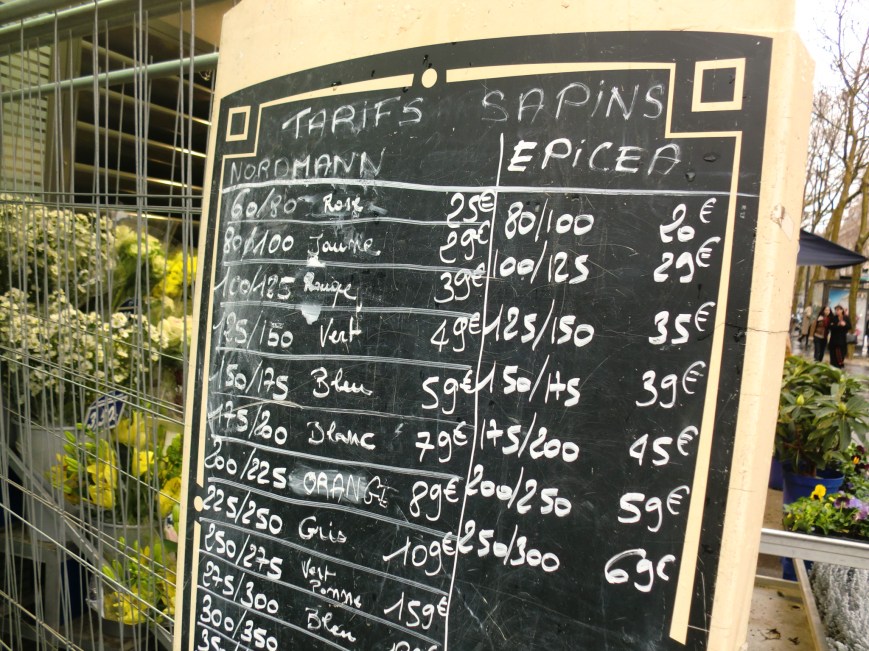 TARIFS SAPINS
NORDMANN
60/80 Rose 25€
80/100 Jaune 29€
100/125 Rouge 39€
125/150 Vert 49€
150/175 Bleu 59€
175/200 Blanc 79€
200/225 ORANGE 89€
225/250 Gris 109€
250/275 Vert Pomme 159€
275/300 Bleu
300/350
EPICEA
80/100 20€
100/125 29€
125/150 35€
150/175 39€
175/200 45€
200/250 59€
250/300 69€